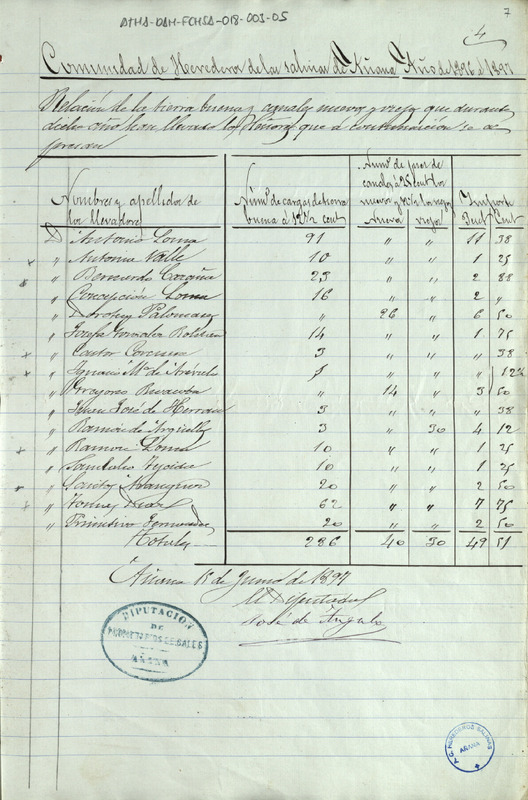 ATHA-DAH-FCHSA-018-003-05
7
4
Comunidad de Herederos de las salinas de Añana Año de 1896 á 1897
Relación de la tierra buena y canales nuevos y viejos que durante
dicho año han llevado los Señores que á continuación se es-
presan
Nombres y apellidos de los llevadores
Núm.º de cargas de tierra buena á 12½ cent
Núm.º de pares de canales á 25 cent los nuevos y 12½ los viejos
Nuevos viejos
Importe
Pest Cent
D. Antonio Loma 91 " " 11 38
" Antonio Valle 10 " " 1 25
" Bernardo 23 " " 2 88
" Concepción Loma 16 " " 2 "
" Dorotea Palomares " 26 " 6 50
" Josefa González 14 " " 1 75
" Castor 3 " " " 38
" Ignacio Mª de 1 " " " 12½
" " 14 " 3 50
" José de Herran 3 " " " 38
" Ramón de Argüelles 3 " 30 4 12
" Ramón Loma 10 " " 1 25
" 10 " " 1 25
" Santos 20 " " 2 50
" 62 " " 7 75
" Primitivo 20 " " 2 50
Totales 286 40 30 49 51
Añana 15 de Junio de 1897
El Diputado
José de Angulo
DIPUTACION
DE
PROPIETARIOS DE SALES
AÑANA
A.G. HEREDEROS SALINAS
AÑANA